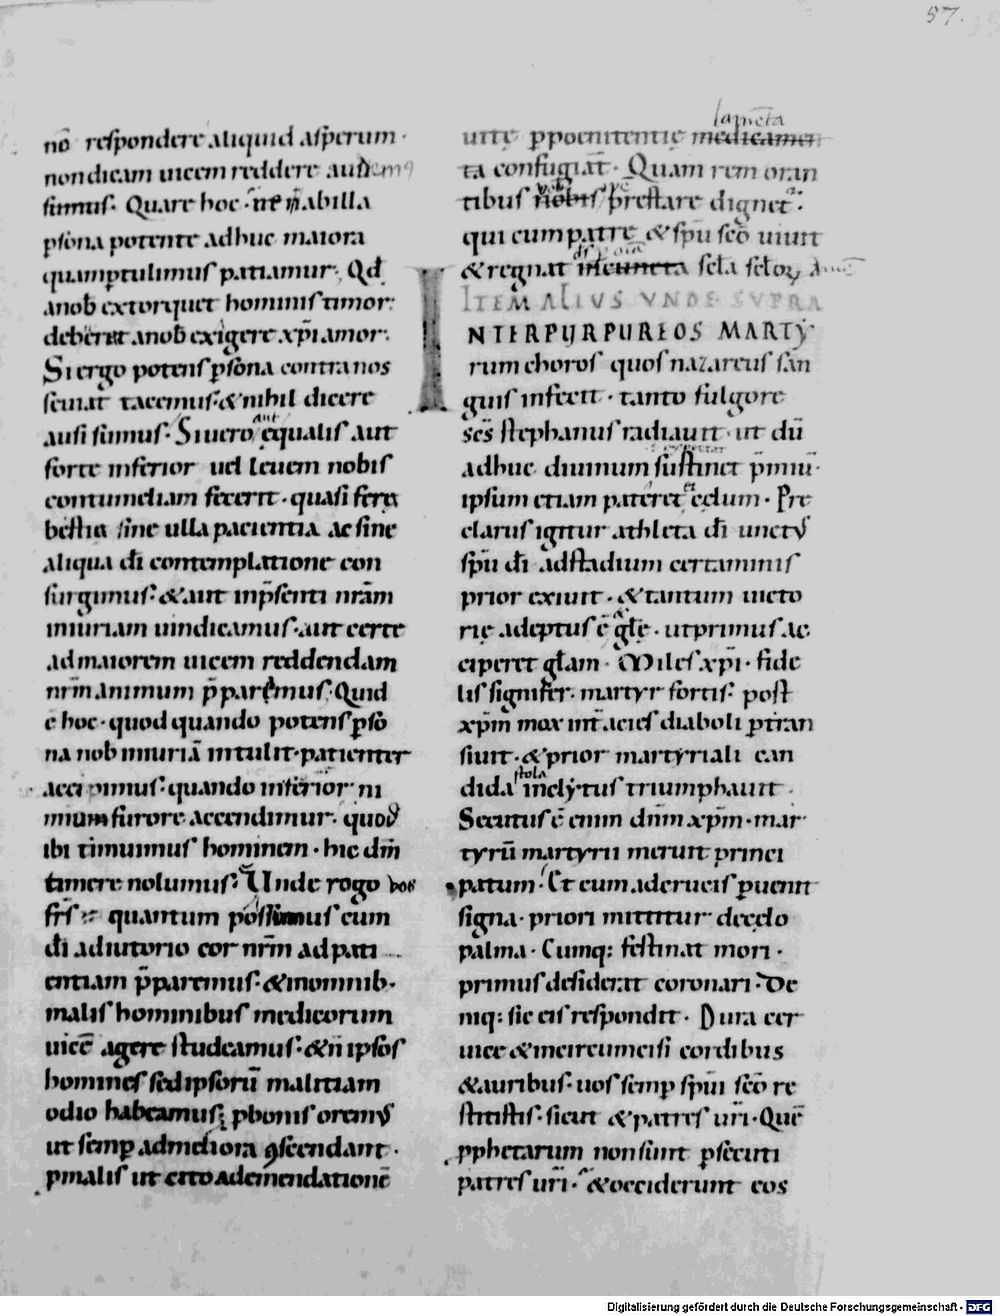 57.
no͞ respondere aliquid asperum·
non dicam uicem reddere audemꝯ
simus. Quare hoc· ab illa
ꝑsona potente adhuc maiora
quamptulimus patiamur; Qd̄
anob̄ extorquet hominis timor:
deberet anob̄ exigere xp̄i amor.
Si ergo potens ꝑsona contra nos
seuiat tacemus· & nihil dicere
ausi simus· Si uero aut ęqualis aut
forte inferior uel leuem nobis
contumeliam fecerit· quasi ferę
bestia sine ulla pacientia ac sine
aliqua dī contemplatione con
surgimus· & aut inp̄senti nrām
iniuriam uindicamus· aut certe
ad maiorem uicem reddendam
nrm̄ animum p̄paremus; Quid
ē hoc· quod quando potens ꝑso
na nob iniuriā intulit· patienter
accipimus· quando inferior ni
mium furore accendimur· quod
ibi timuimus hominem· hic dm̄
timere nolumus· Unde rogo uos
frs̄ quantum possumus cum
dī adiutorio cor nrm̄ ad pati
entiam p̄paremus· & inomnib·
malis hominibus medicorum
uicē agere studeamus· & n̄ ipsos
homines sed ipsorū malitiam
odio habeamus; ꝓbonis oremus
ut semꝑ ad meliora ꝯscendant·
ꝓmalis ut cito ad emendationē
lam̄ta
uitę ꝑpoenitentię medicamen
ta confugiat̄· Quam rem oran
tibus nobis prestare dignet̄·
qui cum patre & sp̄u sc̄o uiuit
& regnat in scl̄a scl̄oꝝ am̄
ITEM ALIUS UNDE SUPRA
INTER PURPUREOS MARTY
rum choros quos nazareus san
guis infecit· tanto fulgore
sc̄s stephanus radiauit· ut dū
adhuc diuinum sustinet p̄miū·
ipsum etiam pateret cęlum· Pre
clarus igitur athleta dī unctus
sp̄u dī ad stadium certaminis
prior exiuit· & tantum uicto
rię adeptus ē glę· ut primus ac
ciperet glam· Miles xp̄i· fide
lis signifer· martyr fortis· post
xp̄m mox int̄ acies diaboli ꝑtran
siuit· & prior martyriali can
dida stola inclytus triumphauit·
Secutus ē enim dnm̄ xp̄m· mar
tyrū martyrii meruit princi
patum· Et cum ad crucis ꝑuenit
signa· priori mittitur de cęlo
palma· Cumq: festinat mori·
primus desiderat coronari· De
niq: sic eis respondit· Dura cer
uice & incircumcisi cordibus
& auribus· uos semꝑ sp̄ui sc̄o re
stitistis· sicut & patres urī· Quē
ꝓphetarum non sunt ꝑsecuti
patres urī· & occiderunt eos
Digitalisierung gefördert durch die Deutsche Forschungsgemeinschaft - DFG